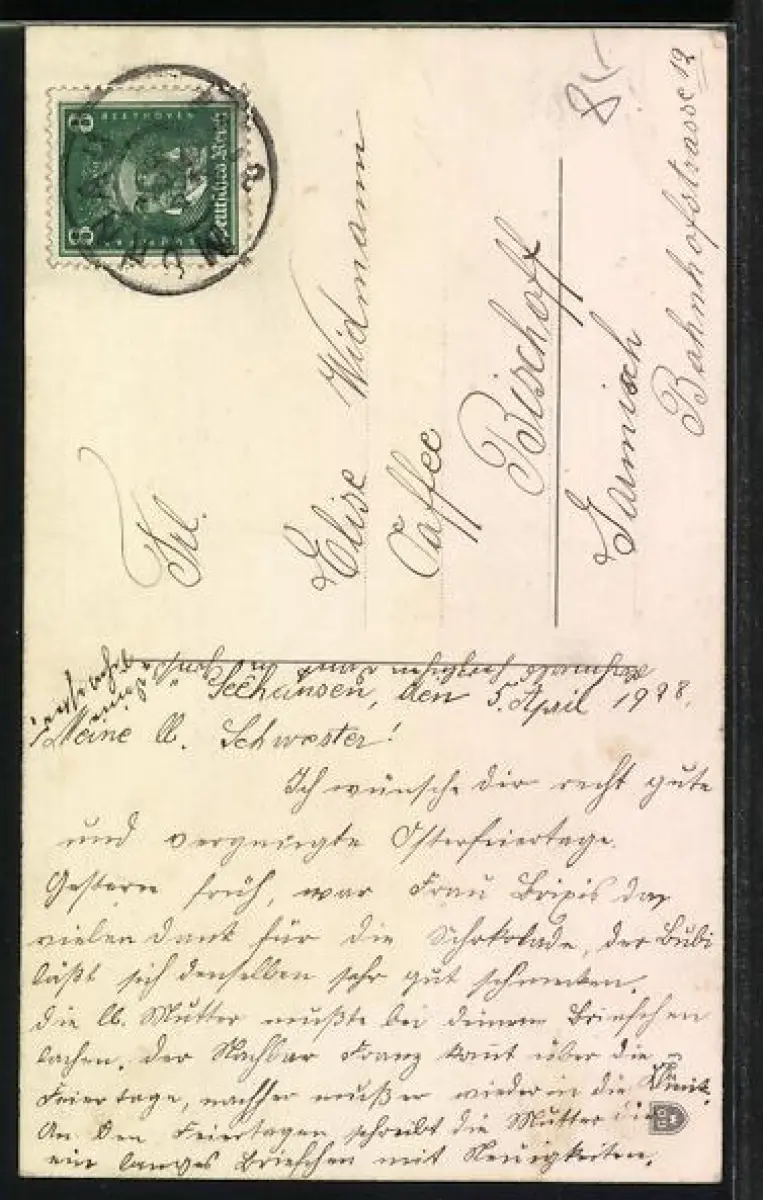 8
8
BEETHOVEN
Deutsches Reich
Frl.
Elise Widmann
Caffee
Bischoff
Garmisch
Bahnhofstrasse 12
Seehausen, den 5. April 1928.
Meine lb. Schwester!
Ich wünsche dir recht gute
und vergnügte Osterfeiertage.
Gestern früh, war Frau da
vielen Dank für die Schokolade, der Bubi
läßt sich denselben sehr gut schmecken.
die lb. Mutter mußte bei deinem Briefchen
lachen. der Nachbar Franz kommt über die
Feiertage, nachher muß er wieder in die Klinik.
An den Feiertagen schreibt die Mutter dir
ein langes Briefchen mit Neuigkeiten.